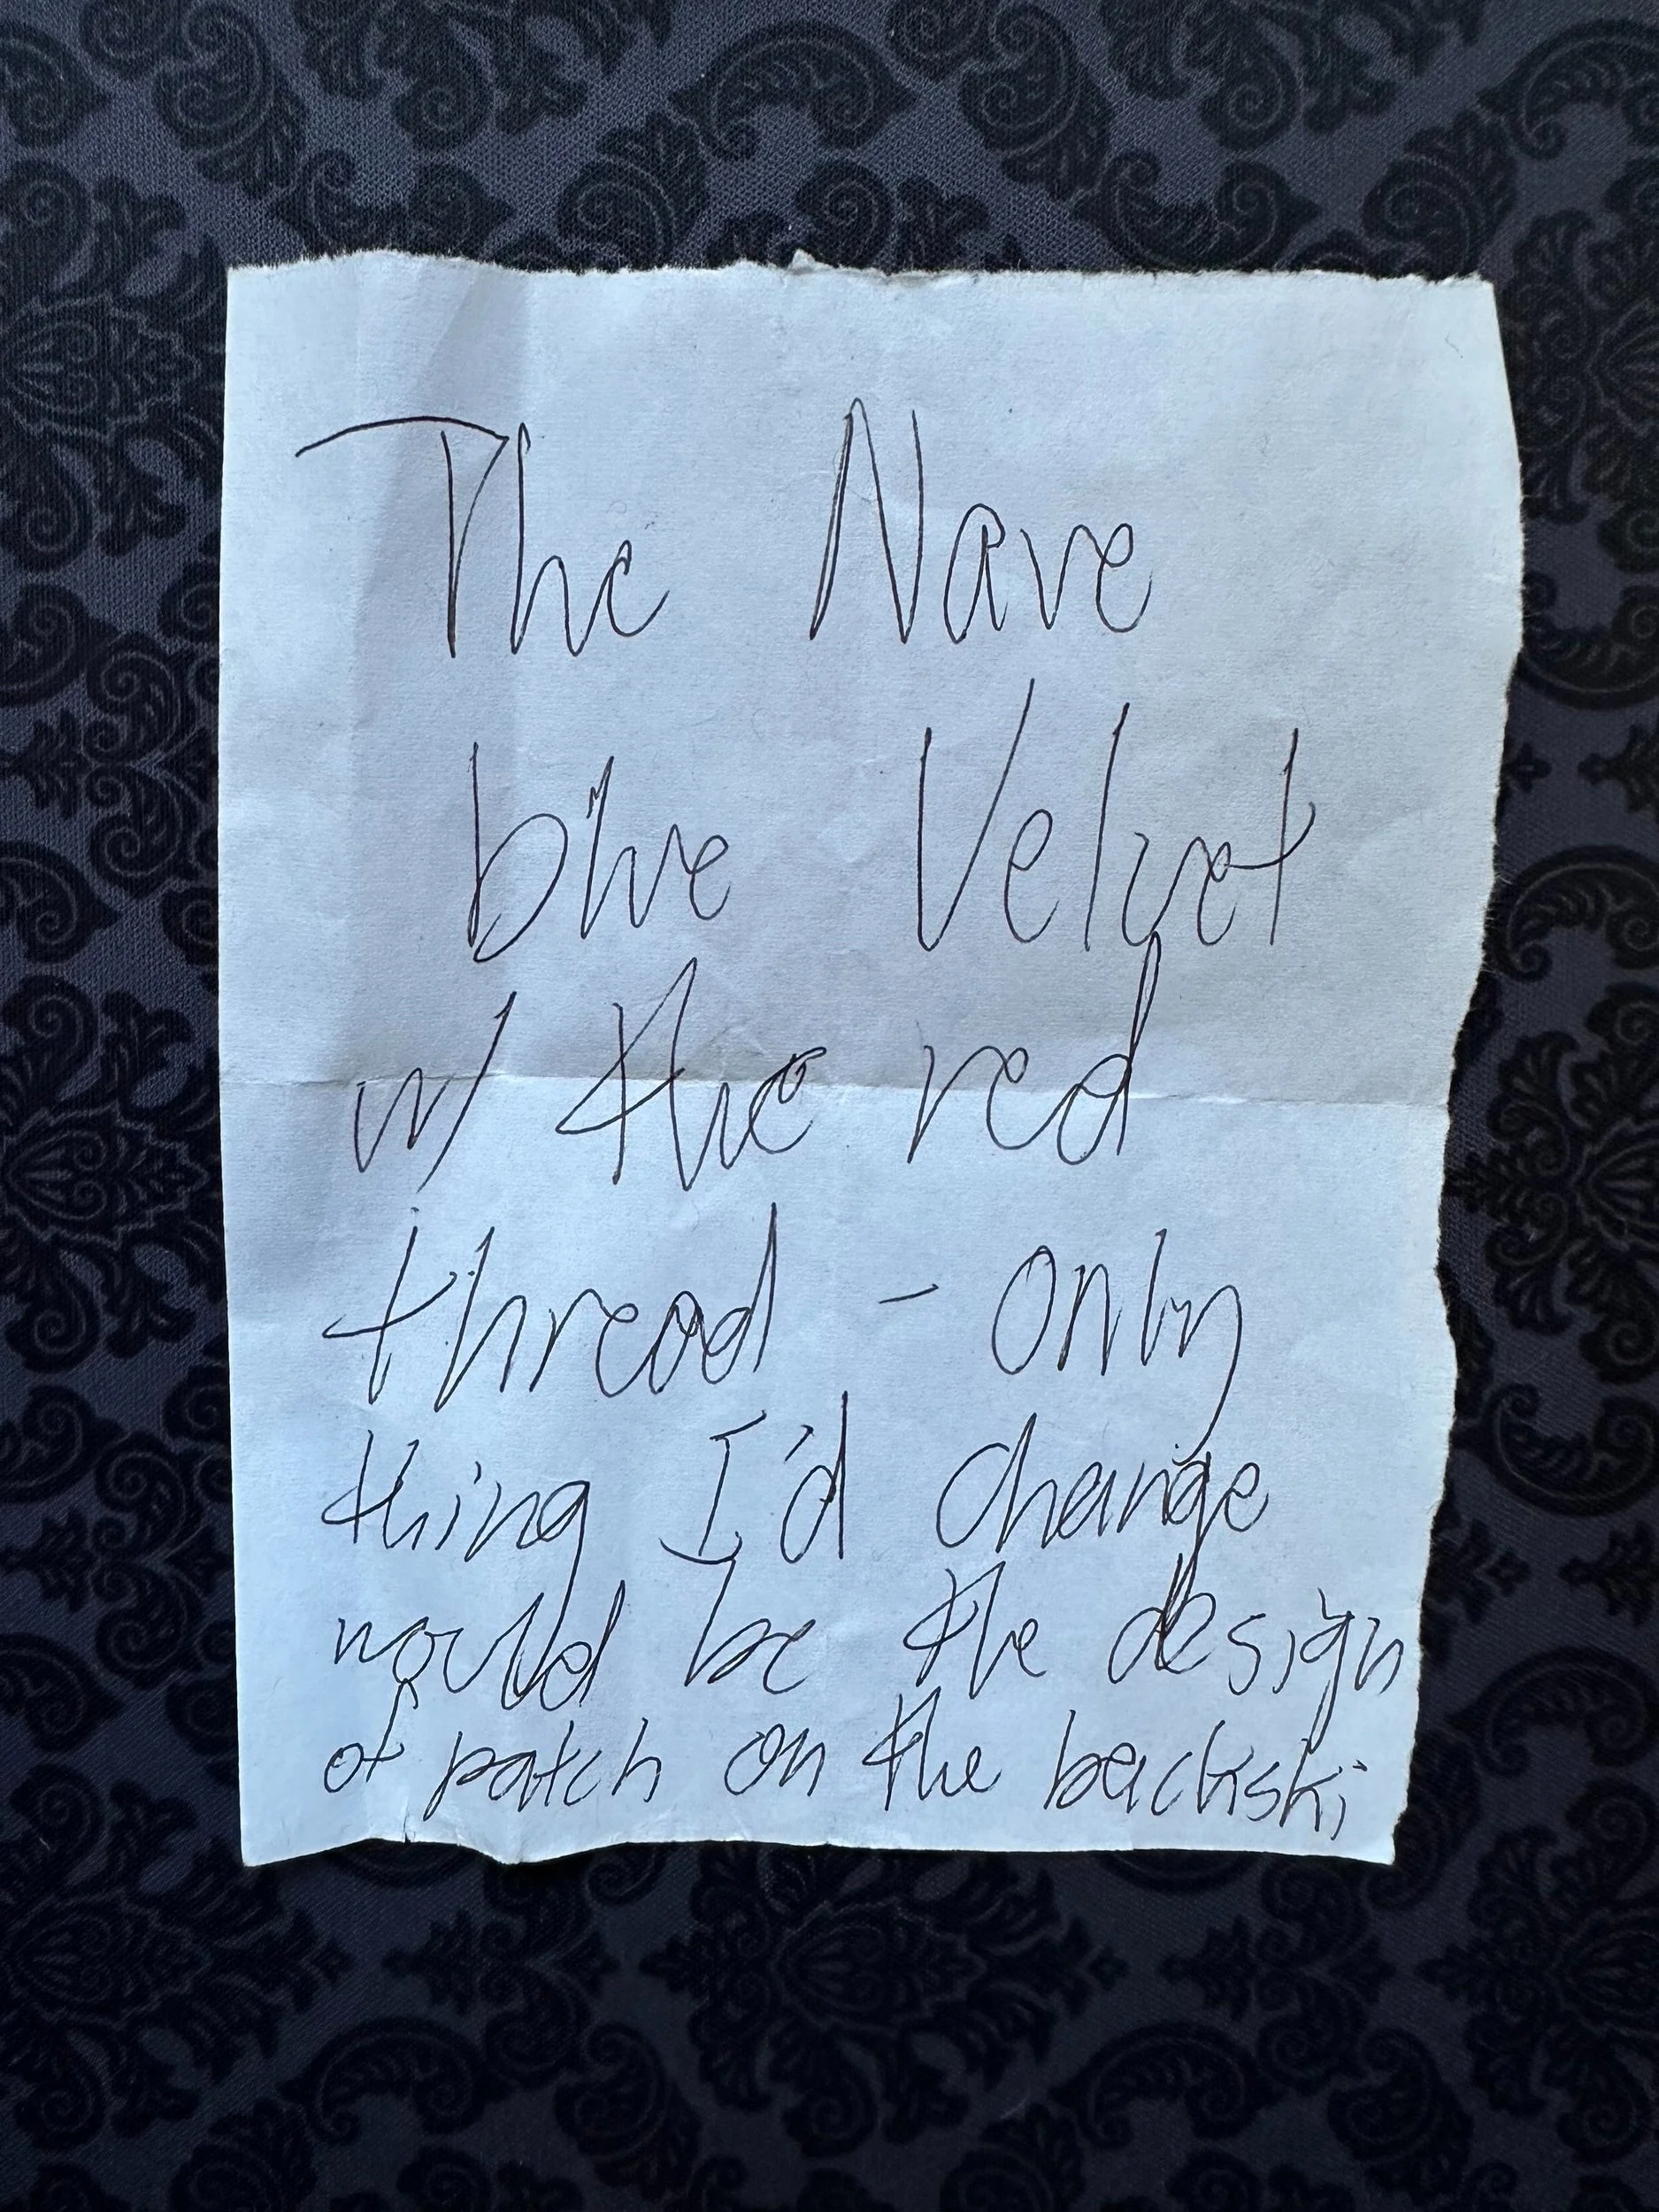 The Nave
blue Velvet
w/ the red
thread - only
thing I'd change
would be the design
of patch on the backski